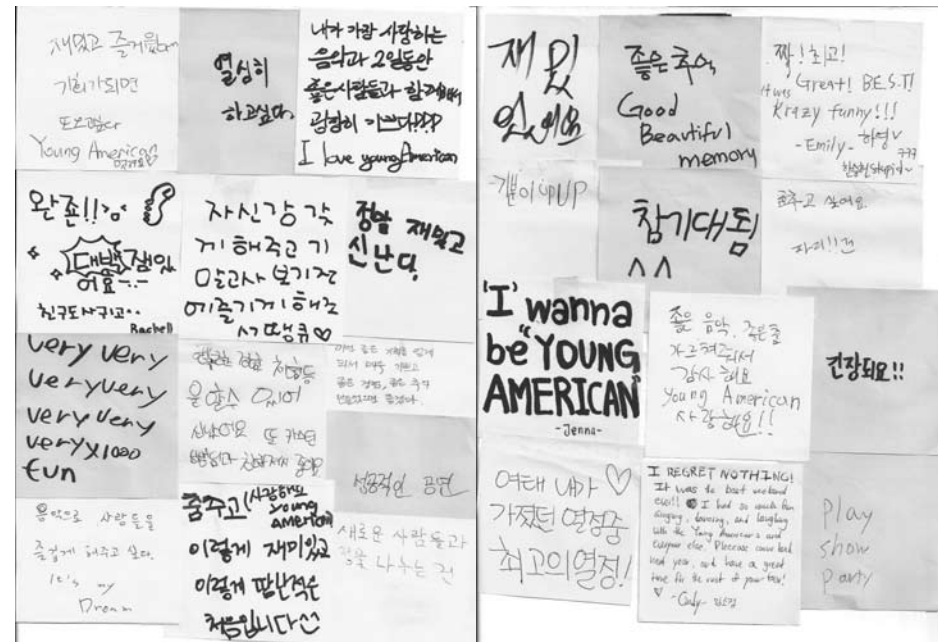 재밌고 즐거웠어
기회가되면
또오고싶다
Young American
열심히
하고싶다.
내가 가장 사랑하는
음악과 2일동안
좋은사람들과 함께해서
굉장히 기쁘다???
I love young American
완죤!!
대박 잼있
어요~.~
친구도사귀고..
Rachell
자신감 갖
게해주고 기
말고사 보기전
에즐기게해조
서땡큐♡
정말 재밌고
신난다.
very very
very very
very very
very x1000
fun
을할수 있어
성공적인 공연
음악으로 사람들을
즐겁게 해주고 싶다.
It's my
Dream
춤추고 (사랑해요
young
American)
이렇게 재미있고
이렇게 땀난적은
처음입니다
새로운 사람들과
정을 나누는 것
재밌
었어요
좋은추억
Good
Beautiful
memory
짱!최고!
It was Great! B.E.S.T!
Krazy funny!!!
-Emily- 하영
ㅋㅋㅋ
-기분이 UPUP
참기대됨
^^
춤추고 싶어요.
'I' wanna
be "YOUNG
AMERICAN"
-Jenna-
좋은 음악, 좋은춤
감사해요
Young American
사랑해요!!
긴장되요!!
여태 내가 ♡
가졌던 열정중
최고의열정!
I REGRET NOTHING!
It was the best weekend
ever!! I had so much fun
singing, dancing, and laughing
with the Young Americans and
everyone else. Please come back
next year, and have a great
time for the rest of your tour!
Play
show
party